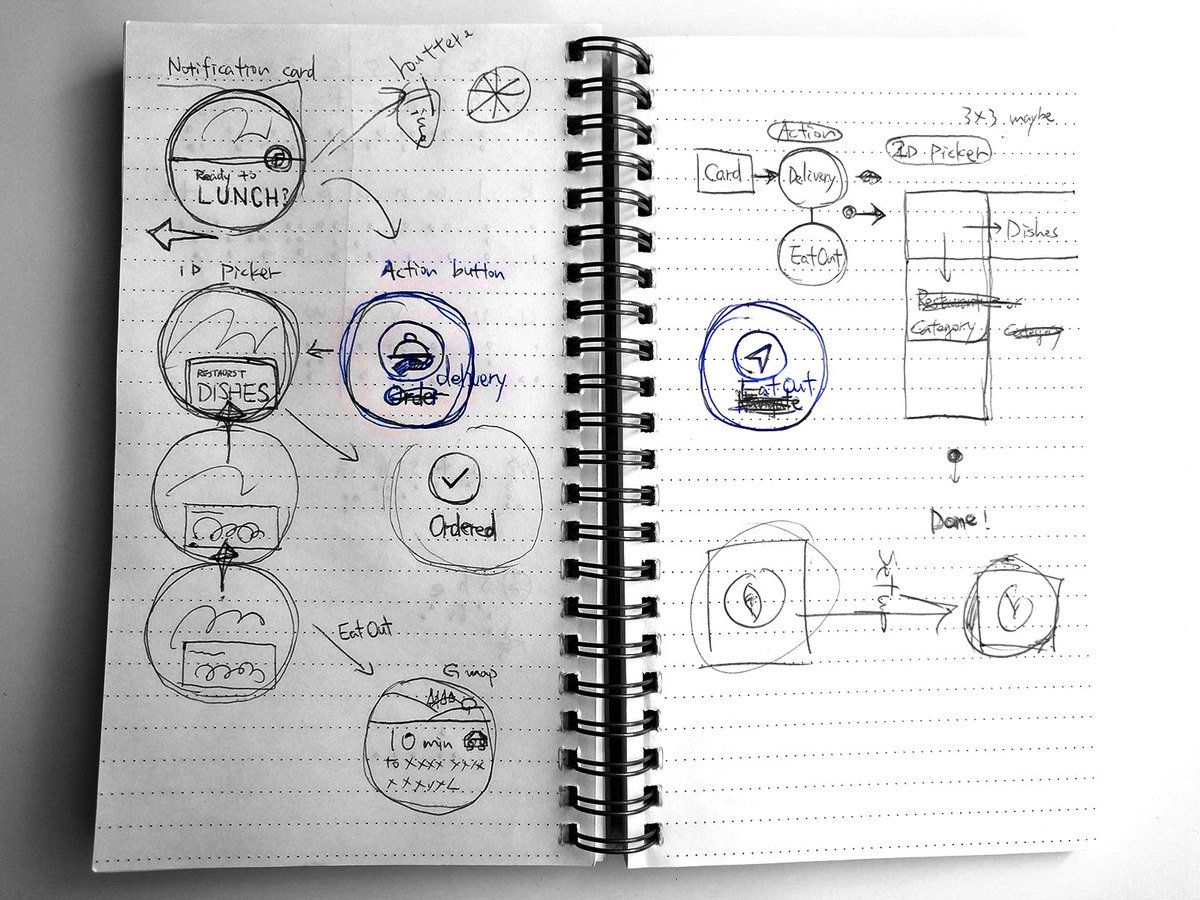 Notification card
Ready to
LUNCH?
1D Picker
Action button
RESTAURST
DISHES
Order
delivery
Ordered
Eat Out
G map
10 min
to xxxx xxxx
3x3 maybe
Action
2D Picker
Card
Delivery
Eat Out
Dishes
Restaurant or
Category
Category
Eat Out
Done!